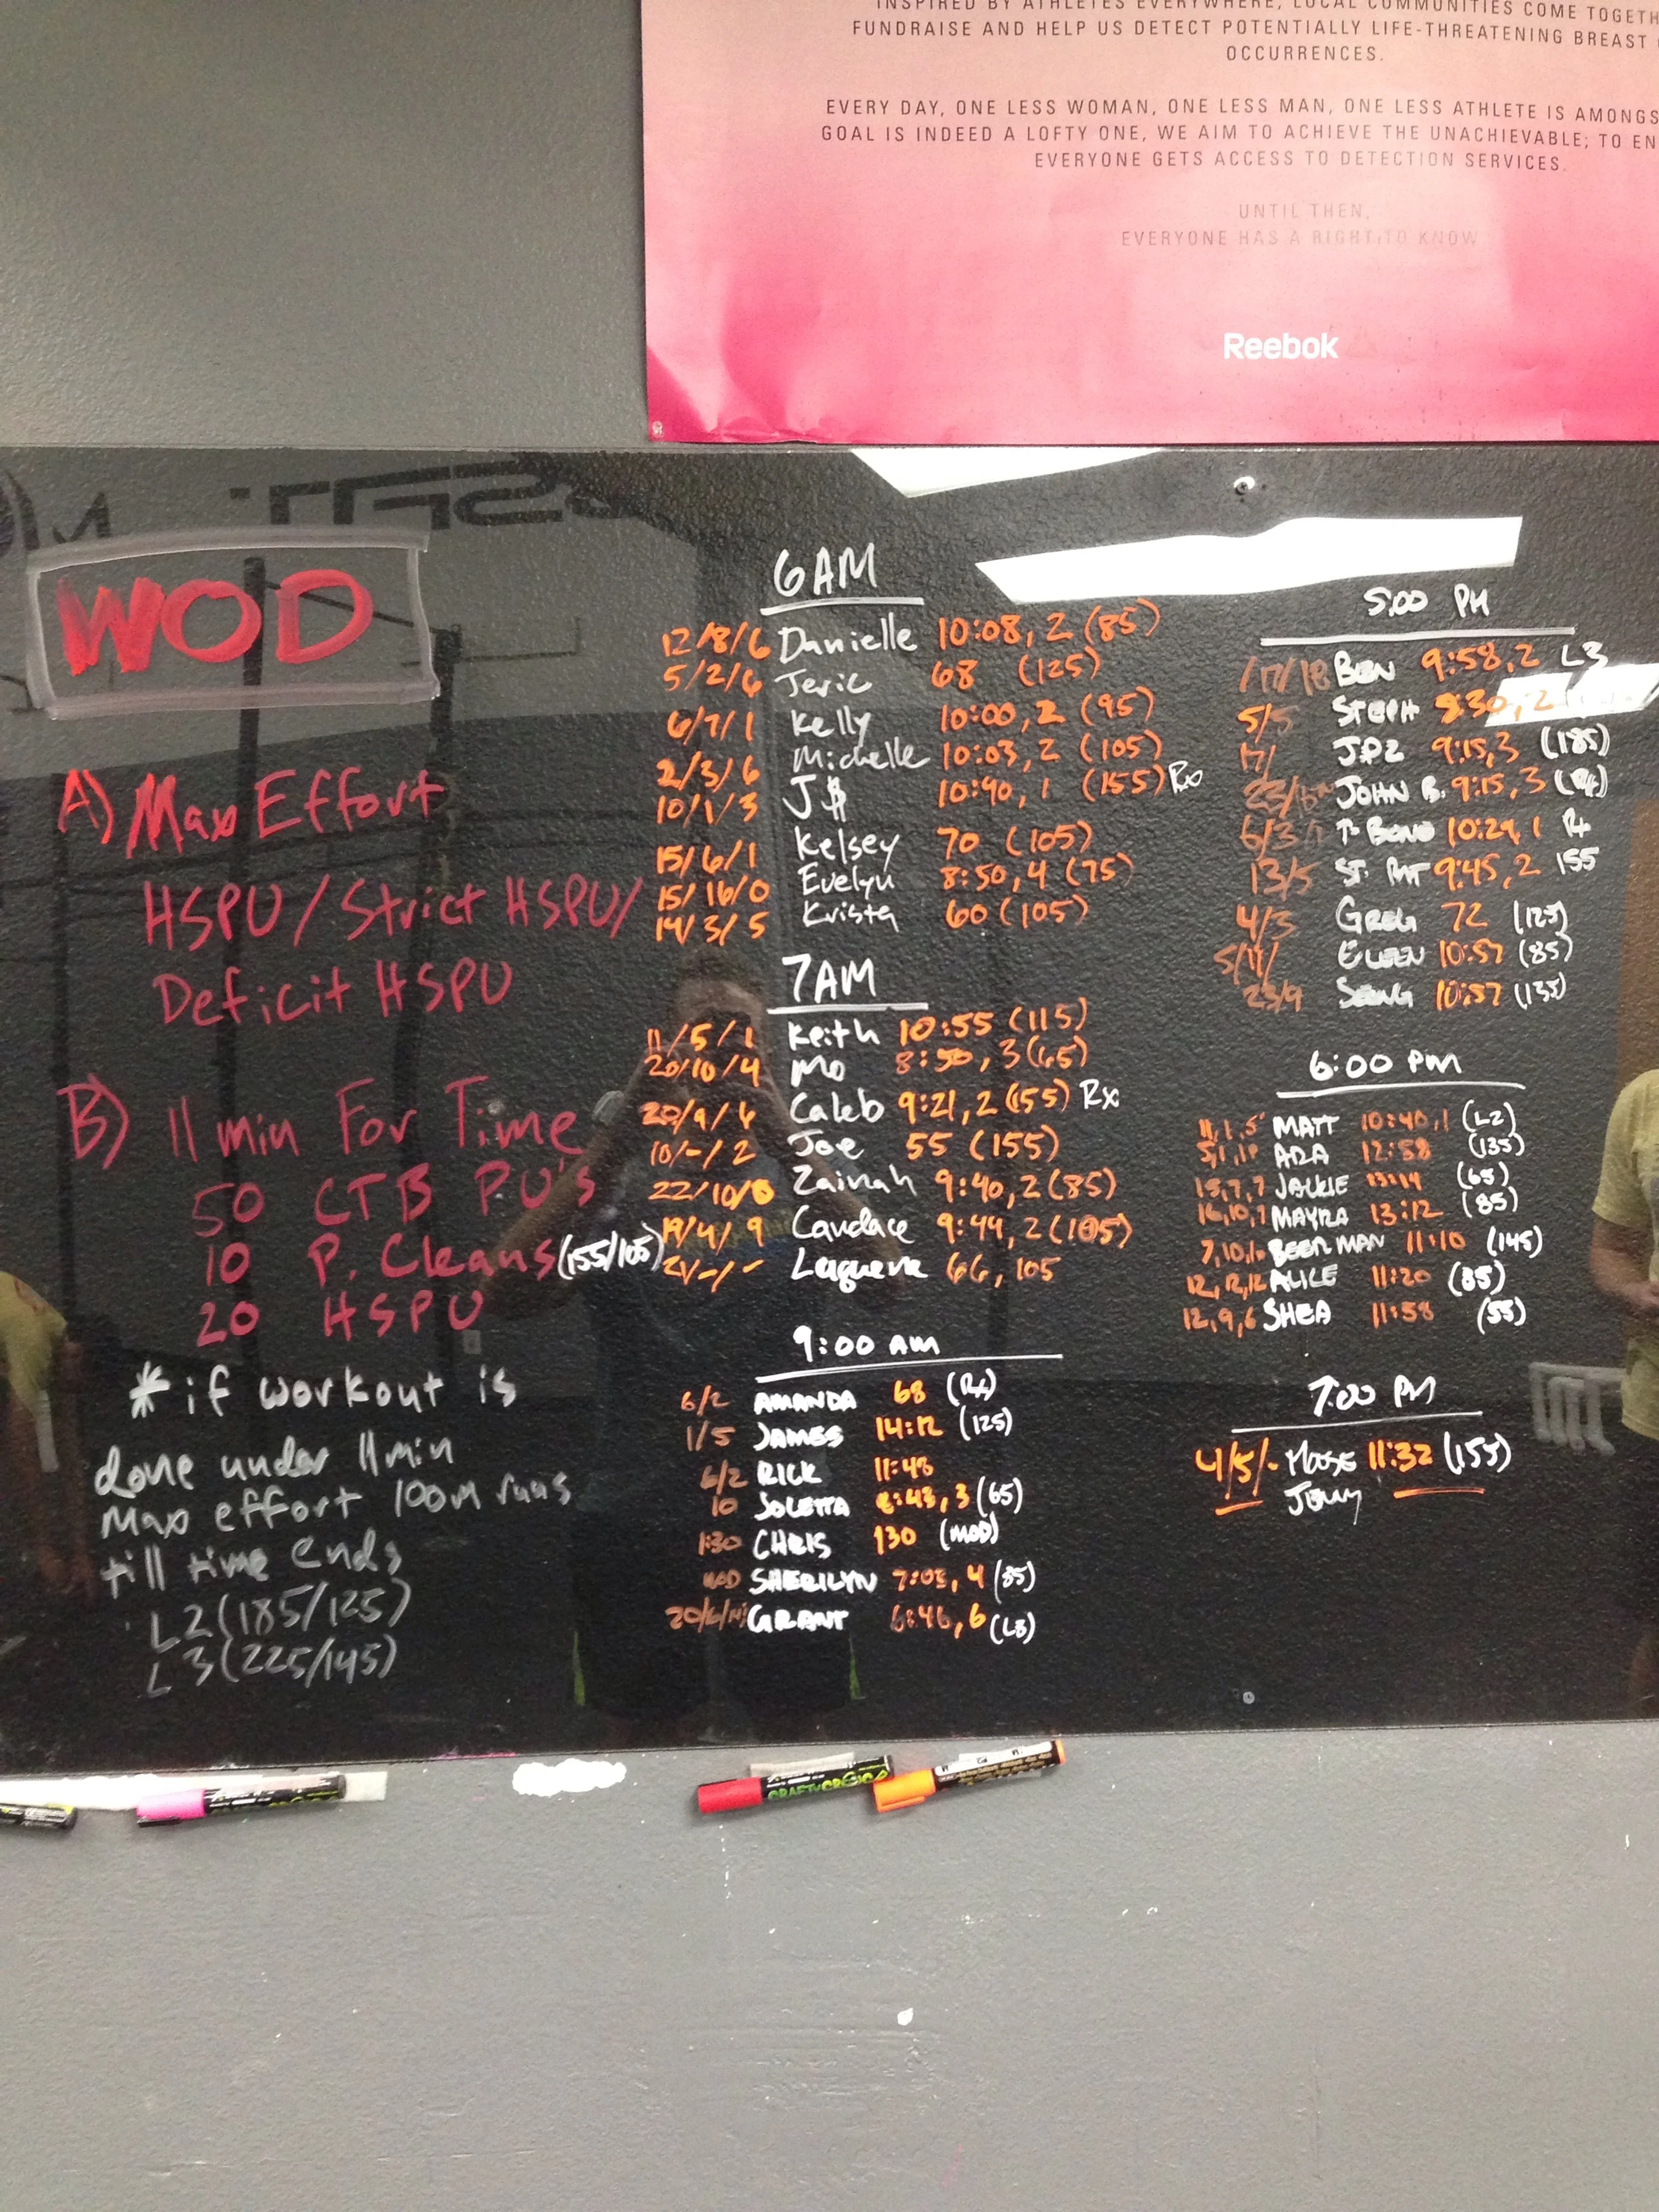 INSPIRED BY ATHLETES EVERYWHERE, LOCAL COMMUNITIES COME TOGETH
FUNDRAISE AND HELP US DETECT POTENTIALLY LIFE-THREATENING BREAST
OCCURRENCES.
EVERY DAY, ONE LESS WOMAN, ONE LESS MAN, ONE LESS ATHLETE IS AMONGS
GOAL IS INDEED A LOFTY ONE, WE AIM TO ACHIEVE THE UNACHIEVABLE; TO EN
EVERYONE GETS ACCESS TO DETECTION SERVICES.
UNTIL THEN,
EVERYONE HAS A RIGHT TO KNOW
Reebok
WOD
A) Max Effort
HSPU / Strict HSPU/
Deficit HSPU
B) 11 min For Time
50 CTB PU's
10 P. Cleans (155/105)
20 HSPU
* if workout is
done under 11min
Max effort 100m runs
till time ends
L2 (185/125)
L3 (225/145)
6AM
12/8/6 Danielle 10:08, 2 (85)
5/2/6 Jeric 68 (125)
6/7/1 Kelly 10:00, 2 (95)
2/3/6 Michelle 10:03, 2 (105)
10/1/3 J$ 10:40, 1 (155) Rx
15/6/1 Kelsey 70 (105)
15/16/0 Evelyn 8:50, 4 (75)
14/3/5 Krista 60 (105)
7AM
11/5/1 Keith 10:55 (115)
20/10/4 Mo 8:50, 3 (65)
20/9/6 Caleb 9:21, 2 (155) Rx
10/-/2 Joe 55 (155)
22/10/8 Zainah 9:40, 2 (85)
19/4/9 Candace 9:44, 2 (105)
21/-/- 66, 105
9:00 AM
6/2 AMANDA 68 (Rx)
1/5 JAMES 14:12 (125)
6/2 RICK 11:48
10 JOLETTA 8:43, 3 (65)
1:30 CHRIS 130 (MOD)
MOD SHERILYN 7:03, 4 (85)
20/6/ GRANT 6:46, 6 (L3)
5:00 PM
/17/18 BEN 9:58, 2 L3
5/5 STEPH 8:30, 2
17/ JPZ 9:15, 3 (185)
23/ JOHN B. 9:15, 3 (Rx)
6/3/ T-BONE 10:29, 1 Rx
13/5 ST. PAT 9:45, 2 155
4/3 GREG 72 (125)
5/11/ EILEEN 10:57 (85)
23/9 10:57 (135)
6:00 PM
11,1,5 MATT 10:40, 1 (L2)
5,1,1 ADA 12:58 (135)
15,7,7 JACKIE 13:14 (65)
16,10,7 MAYRA 13:12 (85)
7,10,10 BEERMAN 11:10 (145)
12,12,12 ALICE 11:20 (85)
12,9,6 SHEA 11:58 (55)
7:00 PM
4/5/- MOOSE 11:32 (155)
CRAFTY CROC